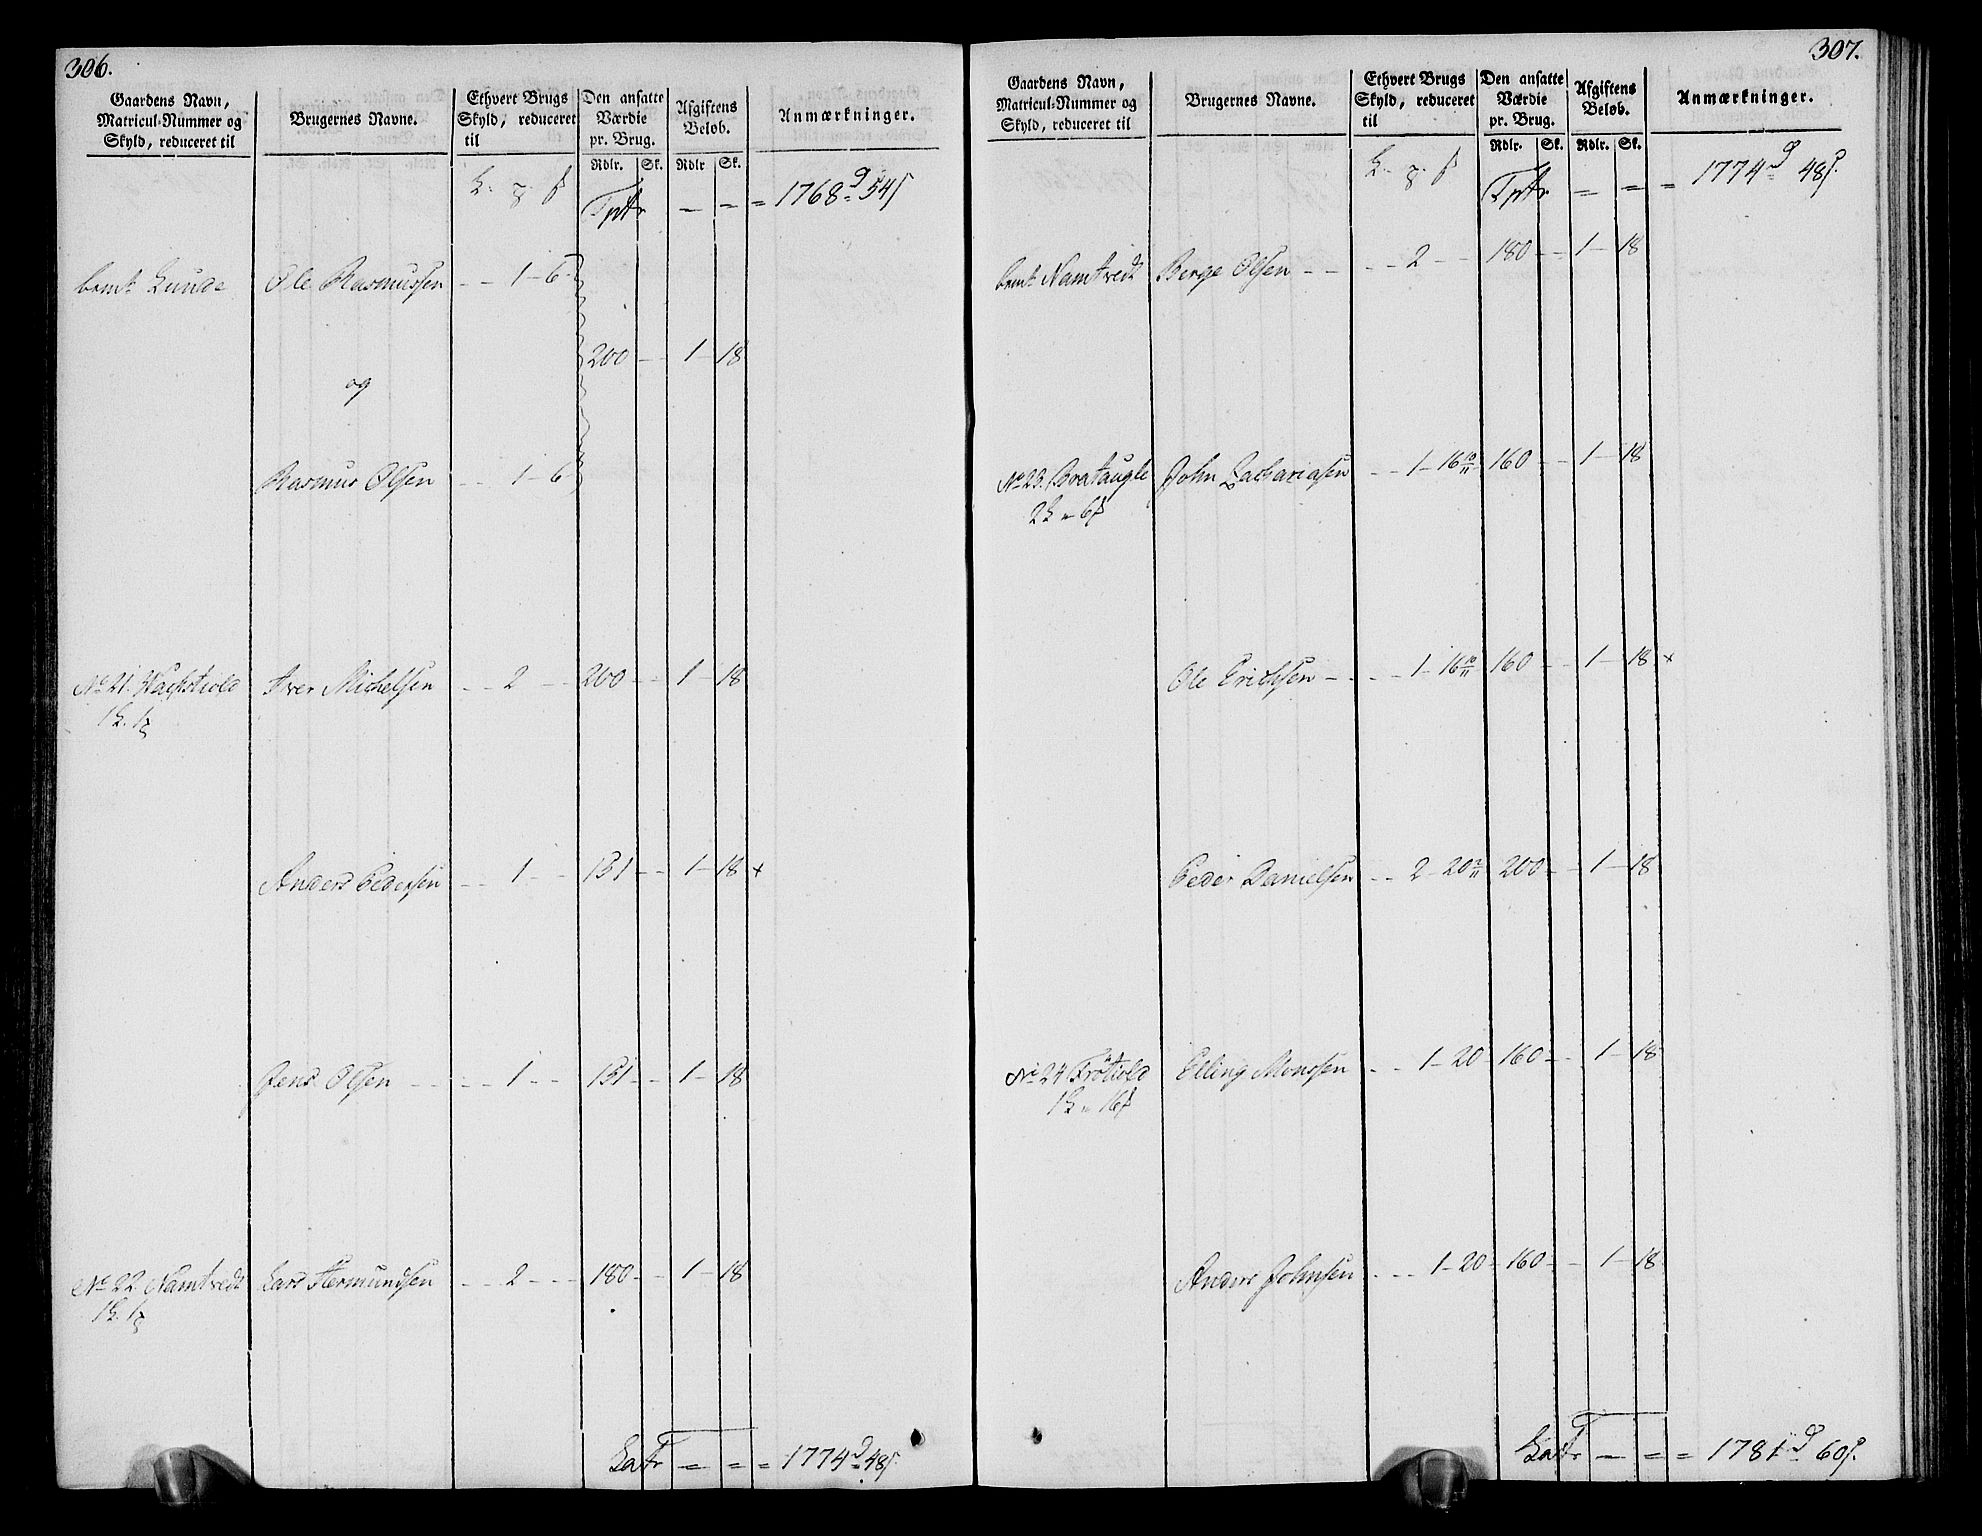 306.
Gaardens Navn, Matricul-Nummer og Skyld, reduceret til
Brugernes Navne.
Ethvert Brugs Skyld, reduceret til
Den ansatte Værdie pr. Brug.
Afgiftens Beløb.
Anmærkninger.
Rdlr. Sk. Rdlr Sk.
Tptr — — = 1768 d 54 s
bemt Lunde Ole Rasmussen - - 1 - 6
200 - - 1 - 18
og
Rasmus Olsen - - 1 - 6
No 21. Wachstvold Iver Michelsen - - 2 - - 200 - - 1 - 18
Anders Pedersen - - 1 - - 131 - - 1 - 18 x
Jens Olsen - - - - 1 - - 131 - - 1 - 18
No 22 Namtvedt Lars Hermundsen - - 2 - - - 180 - - 1 - 18
Latr = = = 1774 d 48 s
307.
Gaardens Navn, Matricul-Nummer og Skyld, reduceret til
Brugernes Navne.
Ethvert Brugs Skyld, reduceret til
Den ansatte Værdie pr. Brug.
Afgiftens Beløb.
Anmærkninger.
Rdlr. Sk. Rdlr. Sk.
Tptr = = = 1774 d 48 s.
bemt Namtvedt Berge Olsen - - - - 2 - - 180 - - 1 - 18
No 23. Brataugle John Zachariasen - - 1 - 16 10/11 160 - - 1 - 18
Ole Erichsen - - - - 1 - 16 10/11 160 - - 1 - 18 x
Peder Danielsen - - 2 - 20 2/11 200 - - 1 - 18
No 24 Frötvold Elling Monssen - - - 1 - 20 - 160 - - 1 - 18
Anders Johnsen - - - 1 - 20 - 160 - - 1 - 18
Latr — = = 1781 d 60 s.